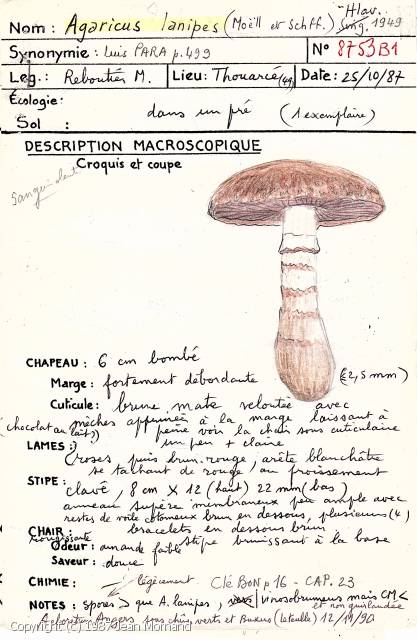 Hlav.
Nom : Agaricus lanipes (Moëll et Schff.) Sing. 1949
Synonymie : Luis PARA p.499 N° 8753B1
Leg. : Reboutier M. Lieu : Thouarcé (49) Date : 25/10/87
Écologie :
Sol : dans un pré (1 exemplaire)
DESCRIPTION MACROSCOPIQUE
Croquis et coupe
CHAPEAU : 6 cm bombé
Marge : fortement débordante (2,5 mm)
Cuticule : brune mate veloutée avec
mèches apprimées à la marge laissant à
(chocolat au lait) peine voir la chair sous cuticulaire
un peu + claire
LAMES : roses puis brun.rouge, arête blanchâtre
se tachant de rouge au froissement
STIPE : clavé, 8 cm X 12 (haut) 22 mm (bas)
anneau supère membraneux peu ample avec
restes de voile cotonneux brun en dessous, plusieurs (4)
bracelets en dessous brun
CHAIR : rougissante stipe brunissant à la base
Odeur : amande faible
Saveur : douce
CHIMIE : légèrement Clé BON p 16 - CAP. 23
NOTES : spores > que A. lanipes, vinosobrumeus mais CM <
et non guirlandée
Angers sous chênes verts et Buxus 12/11/90
Copyright (c) 1987 Jean Mornand